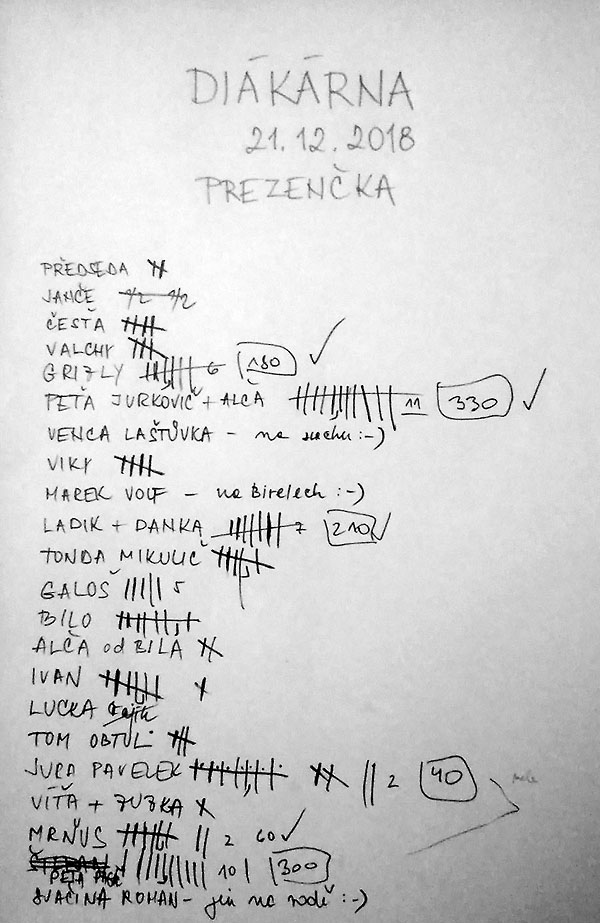 DIÁKÁRNA
21.12.2018
PREZENČKA
PŘEDSEDA
JANČE 1/2 1/2
ČESŤA
VALCHY
GRIZLY 6 180 ✓
PEŤA JURKOVIČ + ALČA 11 330 ✓
VENCA LAŠTŮVKA - na suchu :-)
VIKY
MAREK VOLF - na Birelech :-)
LADIK + DANKA 7 210 ✓
TONDA MIKULIČ
GALOŠ 5
BILO
ALČA od BILA
IVAN
LUCKA
TOM OBTUL
JURA PAVELEK 2 40
VÍŤA + ZUZKA
MRŇUS 2 60 ✓
PEŤA 10 300
SVAČINA ROMAN - jen na vodě :-)